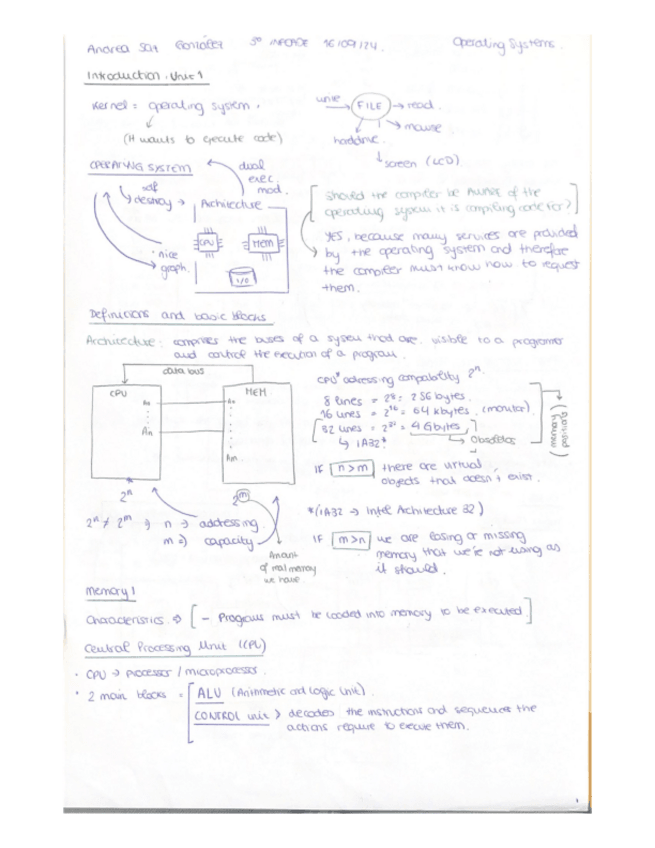 Andrea 3º 16/09/24 Operating Systems.
Introduction. Unit 1
Kernel = operating system.
(It wants to execute code)
write FILE read.
mouse
harddrive.
screen (LCD)
OPERATING SYSTEM dual
exec.
mod.
self
destroy → Architecture
CPU MEM
I/O
nice
graph.
Should the compiler be AWARE of the
operating system it is compiling code for?
YES, because many services are provided
by the operating system and therefore
the compiler must know how to request
them.
Definitions and basic blocks
Architecture: comprises the buses of a system that are visible to a programer
and control the execution of a program.
data bus
CPU MEM
Ao Ao
An
Am
2ⁿ 2ᵐ
2ⁿ ≠ 2ᵐ ⇒ n → addressing
m ⇒ capacity
Amount
of real memory
we have
CPU* adressing compatability 2ⁿ.
8 lines = 2⁸ = 256 bytes.
16 lines = 2¹⁶ = 64 kbytes. (monitor)
32 lines = 2³² = 4 Gbytes.
↳ IA32* → Obsoletos
(memory positions)
IF n>m there are virtual
objects that doesn't exist.
*(IA32 → Intel Architecture 32)
IF m>n we are losing or missing
memory that we're not using as
it should.
Memory 1
Characteristics ⇒ [ - Programs must be loaded into memory to be executed. ]
Central Processing Unit (CPU)
· CPU → processor / microprocessor.
· 2 main blocks = ALU (Arithmetic and Logic Unit).
CONTROL unit > decodes the instructions and sequences the
actions require to execute them.